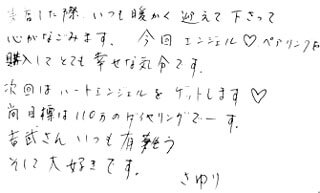 した際、いつも暖かく迎えて下さって
心がなごみます。今回エンジェル♡ペアリングを
購入してとても幸せな気分です。
次回はハートエンジェルをゲットします♡
尚目標は110万のダイヤリングでーす。
吉武さんいつも有難う
そして大好きです。
さゆり